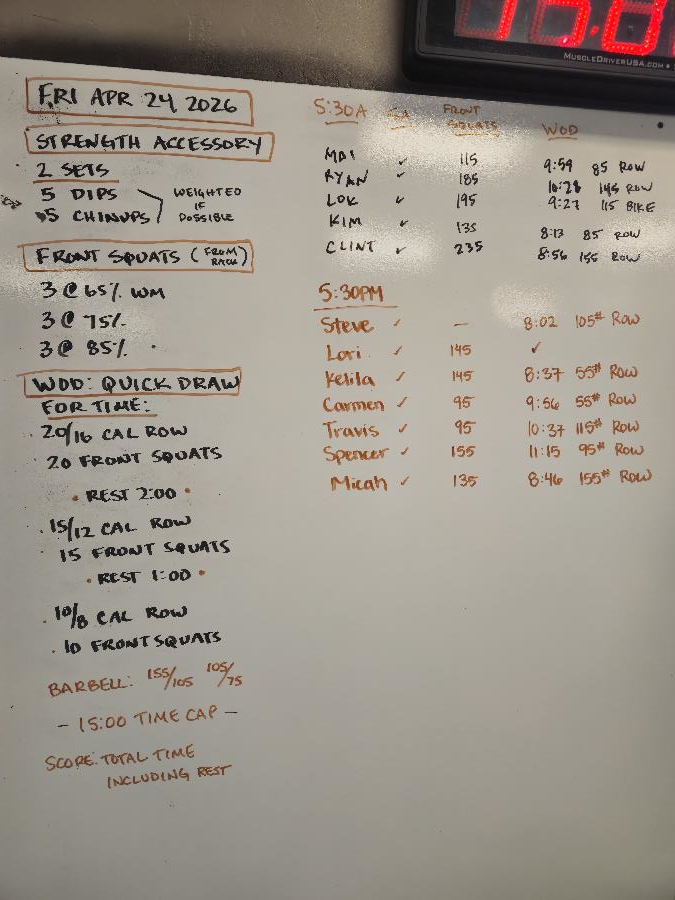 15:0
MUSCLEDRIVERUSA.COM
FRI APR 24 2026
STRENGTH ACCESSORY
2 SETS
5 DIPS
5 CHINUPS
WEIGHTED
IF
POSSIBLE
FRONT SQUATS (FROM RACK)
3 @ 65% WM
3 @ 75%
3 @ 85%
WOD: QUICK DRAW
FOR TIME:
20/16 CAL ROW
20 FRONT SQUATS
• REST 2:00 •
15/12 CAL ROW
15 FRONT SQUATS
• REST 1:00 •
10/8 CAL ROW
10 FRONT SQUATS
BARBELL: 155/105 105/75
- 15:00 TIME CAP -
SCORE: TOTAL TIME
INCLUDING REST
5:30A FRONT SQUATS WOD
MAI ✓ 115 9:59 85 ROW
RYAN ✓ 185 10:28 145 ROW
LOK ✓ 195 9:27 115 BIKE
KIM 135 8:13 85 ROW
CLINT ✓ 235 8:56 155 ROW
5:30PM
Steve ✓ — 8:02 105# Row
Lori ✓ 145 ✓
Kelila ✓ 145 8:37 55# Row
Carmen ✓ 95 9:56 55# Row
Travis ✓ 95 10:37 115# Row
Spencer ✓ 155 11:15 95# Row
Micah ✓ 135 8:46 155# Row